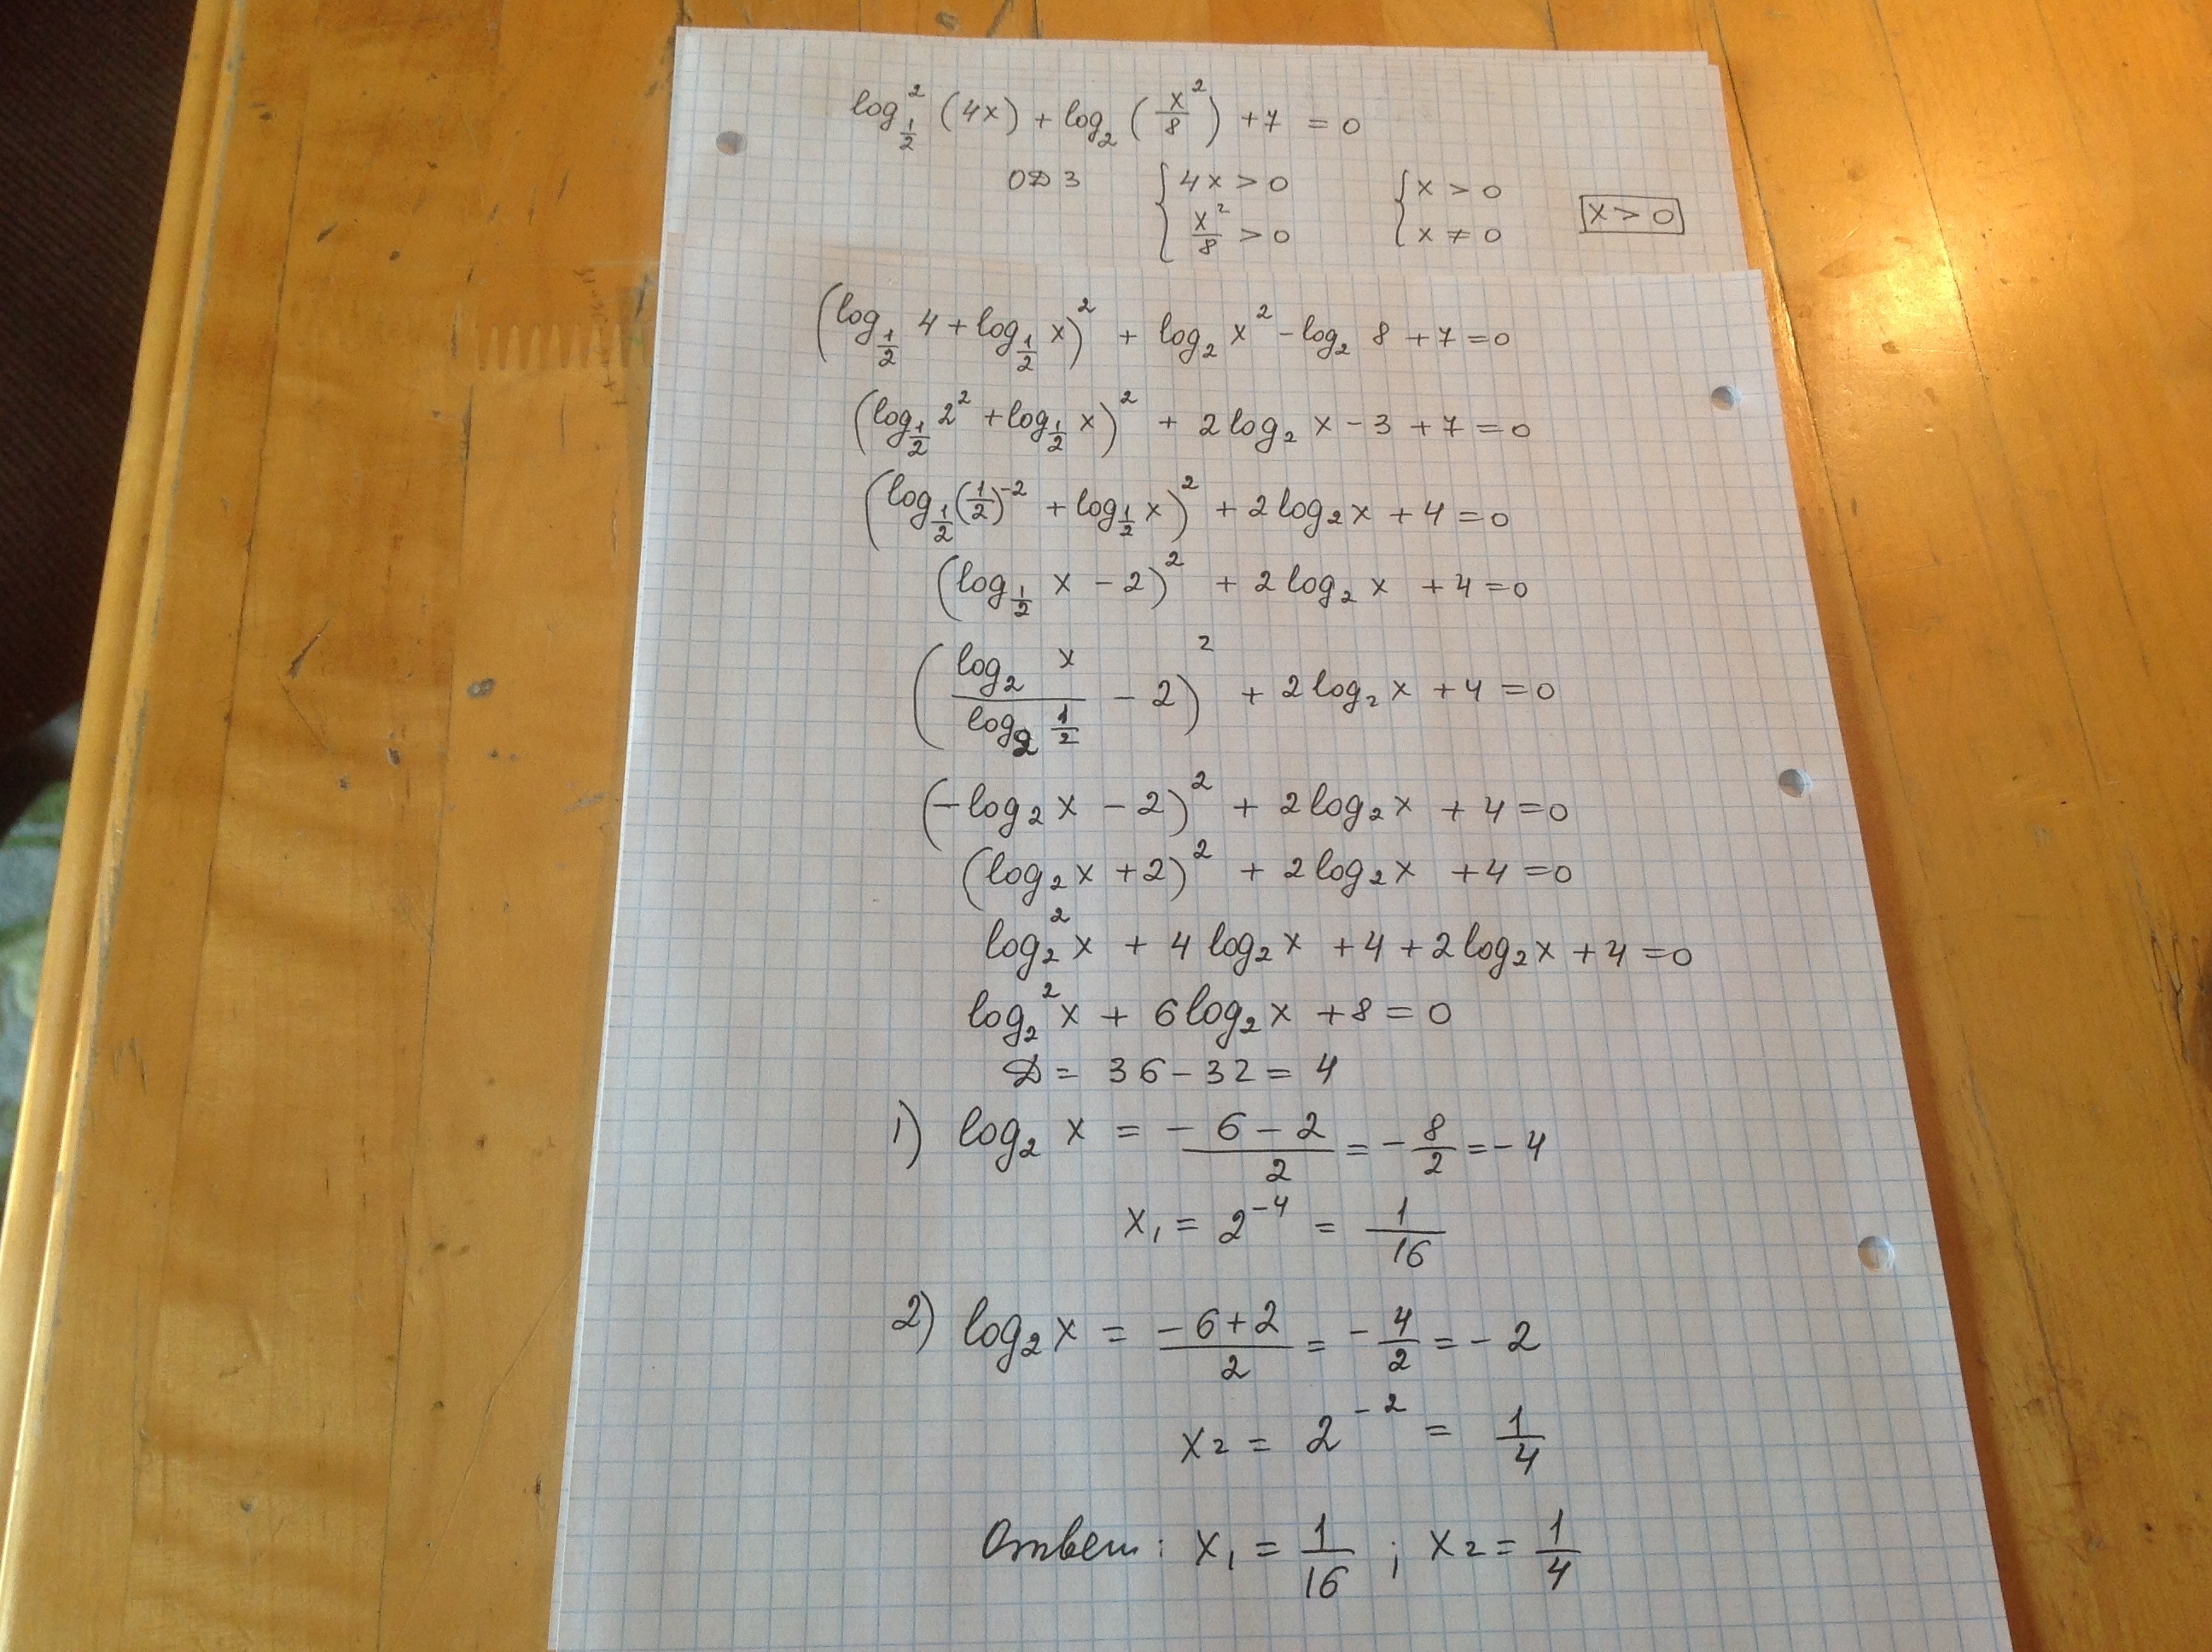 log²_{1/2} (4x) + log₂ (x²/8) + 7 = 0
ОДЗ { 4x > 0 { x > 0
x²/8 > 0 x ≠ 0 x > 0
(log_{1/2} 4 + log_{1/2} x)² + log₂ x² - log₂ 8 + 7 = 0
(log_{1/2} 2² + log_{1/2} x)² + 2 log₂ x - 3 + 7 = 0
(log_{1/2} (1/2)⁻² + log_{1/2} x)² + 2 log₂ x + 4 = 0
(log_{1/2} x - 2)² + 2 log₂ x + 4 = 0
(log₂ x / log₂ 1/2 - 2)² + 2 log₂ x + 4 = 0
(- log₂ x - 2)² + 2 log₂ x + 4 = 0
(log₂ x + 2)² + 2 log₂ x + 4 = 0
log₂² x + 4 log₂ x + 4 + 2 log₂ x + 4 = 0
log₂² x + 6 log₂ x + 8 = 0
D = 36 - 32 = 4
1) log₂ x = (- 6 - 2)/2 = - 8/2 = - 4
x₁ = 2⁻⁴ = 1/16
2) log₂ x = (- 6 + 2)/2 = - 4/2 = - 2
x₂ = 2⁻² = 1/4
Ответ: x₁ = 1/16 ; x₂ = 1/4